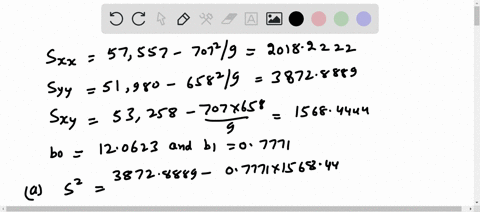 Sxx = 57,557 - 707²/9 = 2018.2222
Syy = 51,980 - 658²/9 = 3872.8889
Sxy = 53,258 - 707×658/9 = 1568.4444
b0 = 12.0623 and b1 = 0.7771
(a) S² = 3872.8889 - 0.7771×1568.44